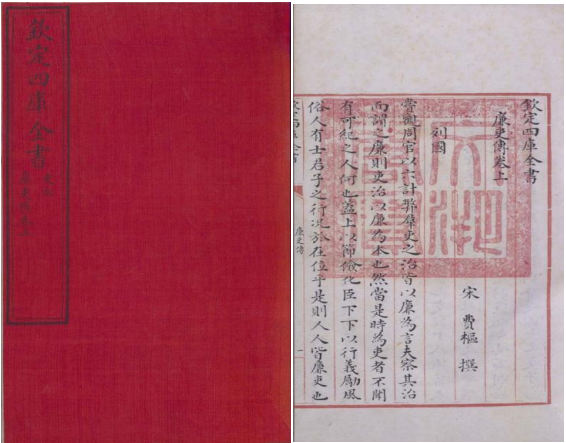 欽定四庫全書
欽定四庫全書
廉吏傳卷上
宋 費樞 撰
列國
嘗觀周官以六計弊羣吏之治皆以廉為言夫察其治
而謂之廉則吏治以廉為本也然當是時為吏者不聞
有可紀之人何也蓋上以節儉化臣下下以行義勵風
俗人有士君子之行況於在位乎是則人人皆廉吏也
欽定四庫全書
廉吏傳
一